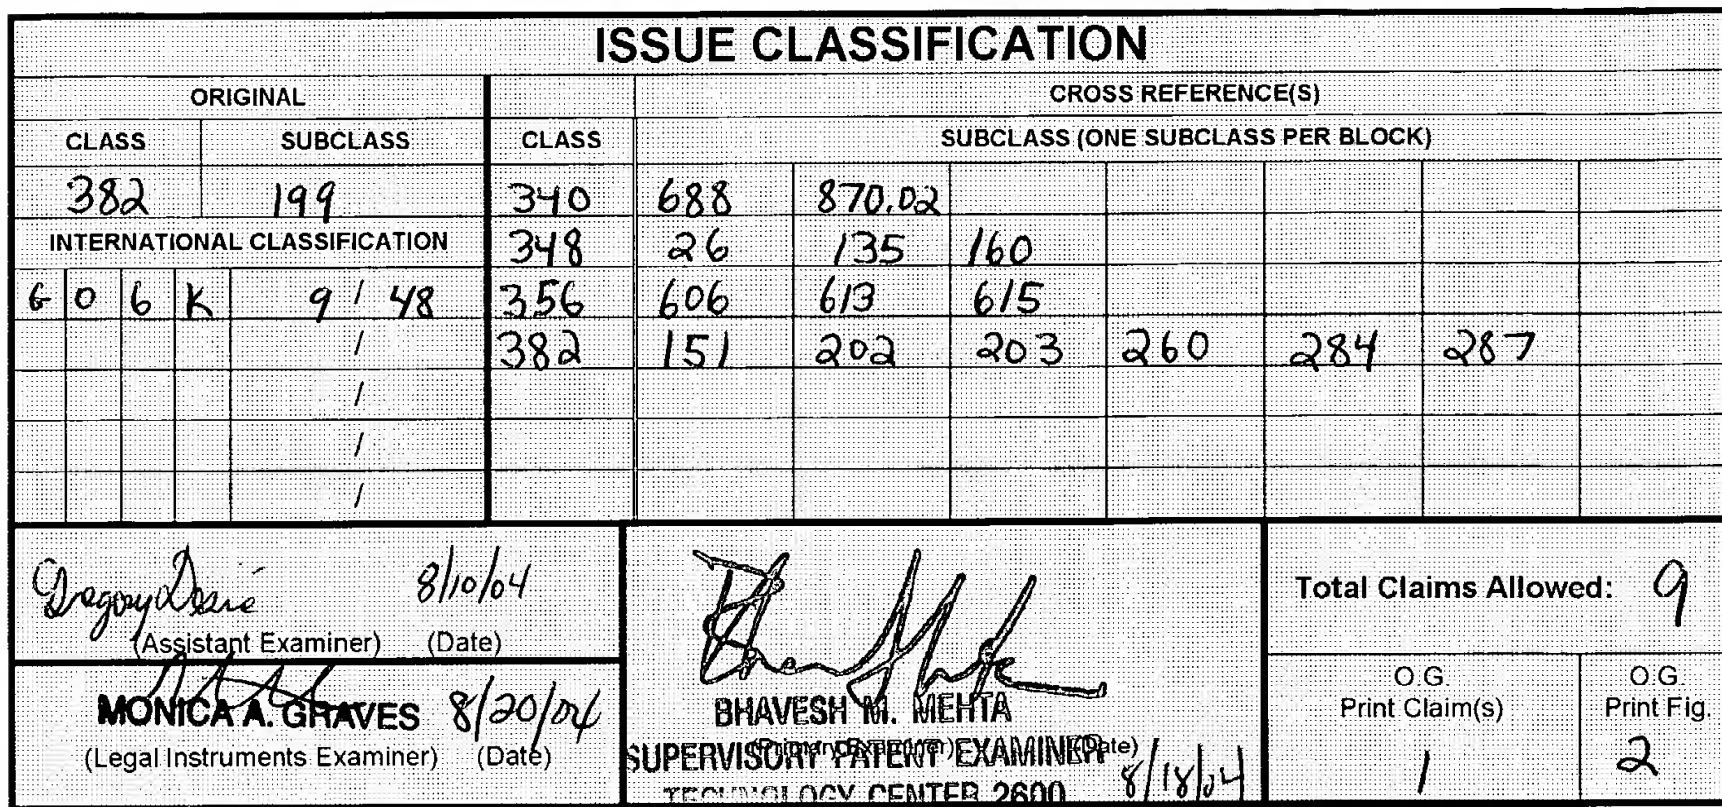 ISSUE CLASSIFICATION
ORIGINAL CROSS REFERENCE(S)
CLASS SUBCLASS CLASS SUBCLASS (ONE SUBCLASS PER BLOCK)
382 199 340 688 870.02
INTERNATIONAL CLASSIFICATION 348 26 135 160
G 0 6 K 9 / 48 356 606 613 615
/ 382 151 202 203 260 284 287
/
/
/
Gregory 8/10/04
(Assistant Examiner) (Date)
MONICA A. GRAVES 8/20/04
(Legal Instruments Examiner) (Date)
BHAVESH M. MEHTA
(Primary Examiner) (Date)
SUPERVISORY PATENT EXAMINER
TECHNOLOGY CENTER 2600 8/18/04
Total Claims Allowed: 9
O.G. O.G.
Print Claim(s) Print Fig.
1 2